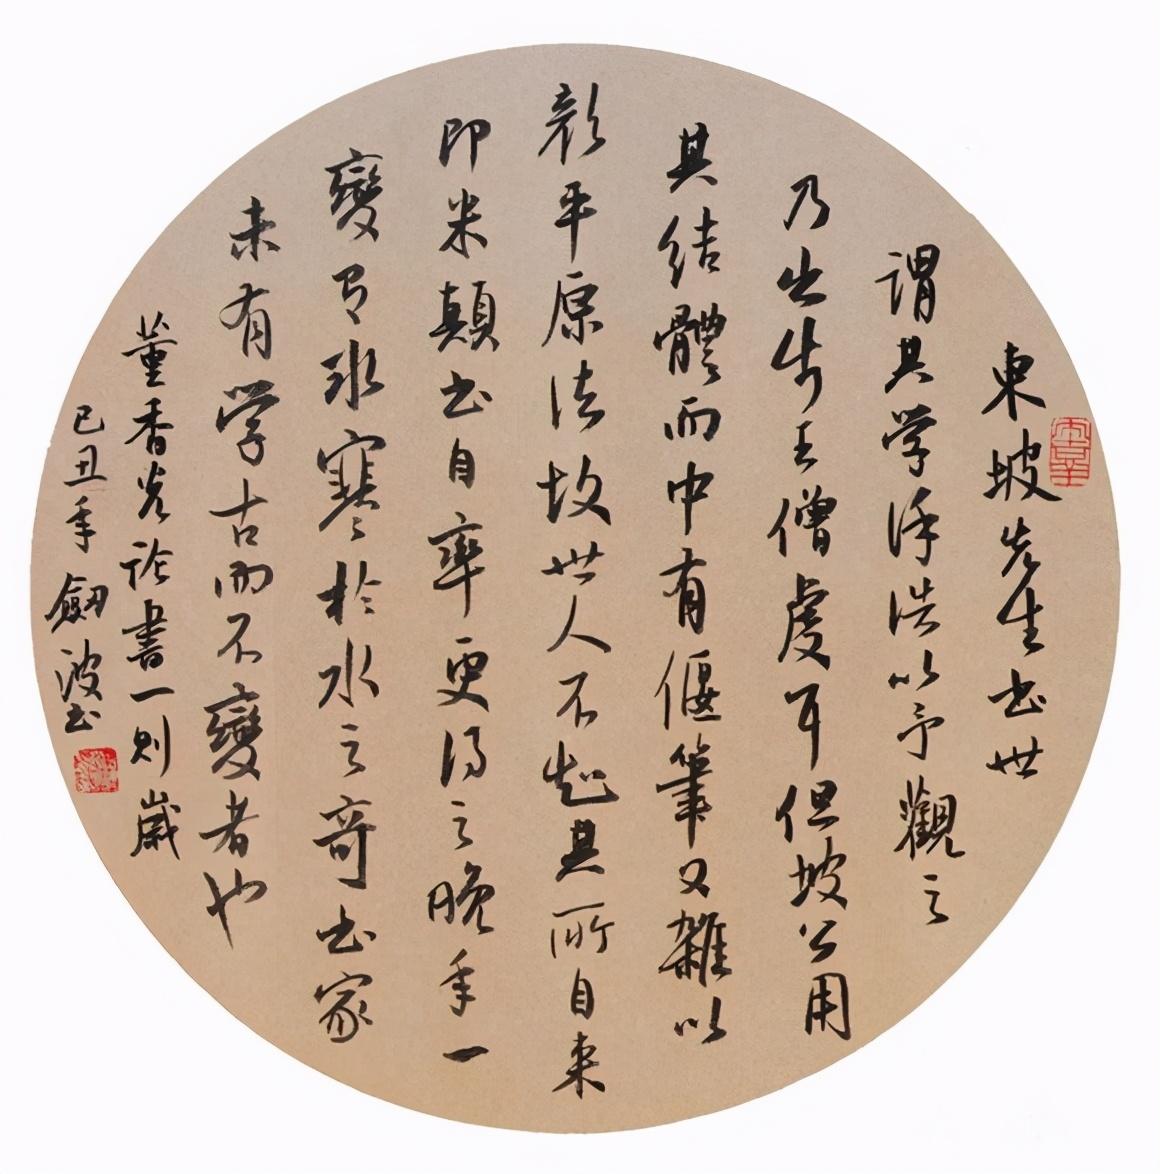 東坡先生书世
謂其学徐浩以予觀之
乃出於王僧虔耳但坡公用
其结體而中有偃筆又雜以
顏平原法故世人不知其所自来
即米顛书自率更得之晚年一
變有冰寒於水之奇书家
未有学古而不變者也
董香光论書一则歲
己丑年劍波书